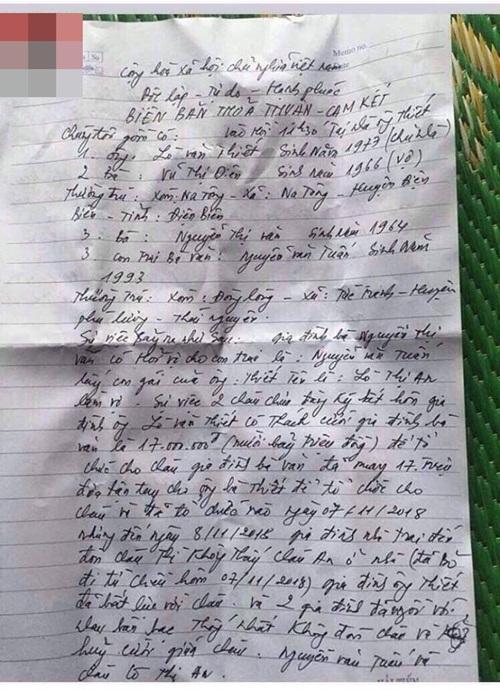 Memo no.
Cộng hoà xã hội chủ nghĩa việt nam
Độc lập - Tự do - Hạnh phúc
BIÊN BẢN THOẢ THUẬN - CAM KẾT
Chúng tôi gồm có: vào hồi 12h30 Tại nhà ông Thiết
1. ông: Lò văn Thiết - Sinh Năm 1977 (chủ hộ)
2 Bà: Vũ Thị Diên Sinh năm 1966 (vợ)
Thường trú: Xóm: Na Tông - Xã: Na Tông - Huyện Điện
Biên - Tỉnh: Điện Biên
3. Bà: Nguyễn Thị vân Sinh Năm 1964
3 con Trai Bà vân: Nguyễn văn Tuấn Sinh Năm
1993
Thường Trú: Xóm: Đồng Lòng - Xã: Tức Tranh - Huyện
phú lương - Thái nguyên.
Sự việc Sảy ra như Sau: gia đình bà Nguyễn Thị
vân có Hỏi vợ cho con trai là: Nguyễn văn Tuấn
lấy con gái của ông: Thiết Tên là: Lò Thị An
làm vợ. Sự việc 2 cháu chưa đăng ký kết hôn gia
đình ông Lò văn Thiết có Thách cưới gia đình bà
vân là 17.000.000đ (mười bảy triệu đồng) để tổ
chức cho cháu gia đình bà vân đã mang 17. triệu
đến tận tay cho ông bà Thiết để tổ chức cho
cháu và đã tổ chức vào ngày 07/11/2018
nhưng đến ngày 8/11/2018 gia đình nhà trai đến
đón cháu Thì Không Thấy cháu An ở nhà (đã Bỏ
đi từ chiều hôm 07/11/2018) gia đình ông Thiết
đã bất lực với cháu. và 2 gia đình đã ngồi với
nhau bàn bạc Thống nhất Không đón cháu về
huỷ cưới giữa cháu. Nguyễn văn Tuấn và
cháu Lò Thị An.